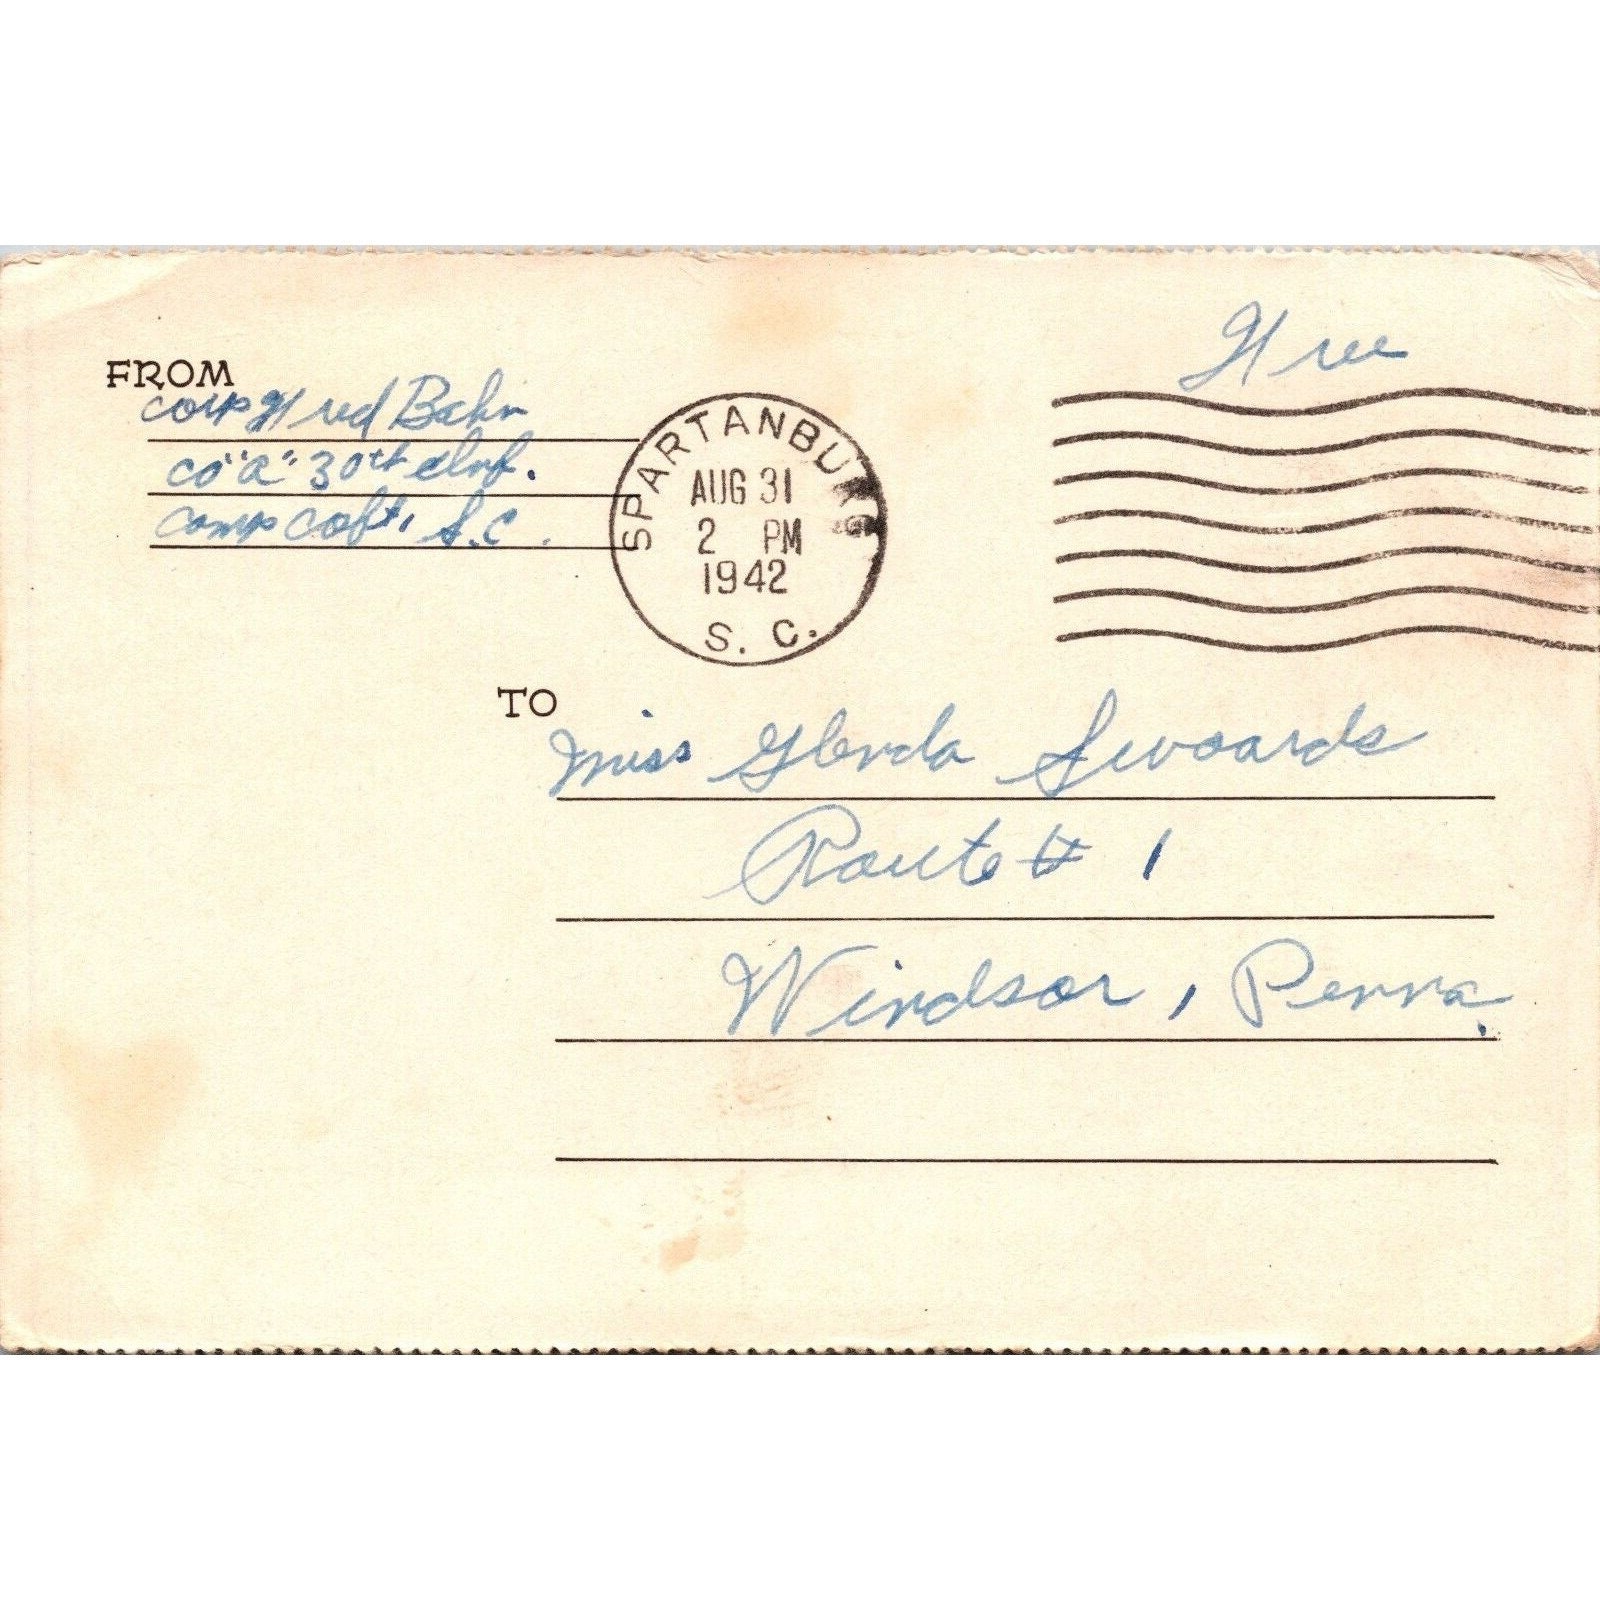 Free
FROM
Corp Fred Bahn
Co "A" 30th Inf.
Camp Coft, S.C.
SPARTANBURG
AUG 31
2 PM
1942
S. C.
TO
Miss Glenda Swoards
Route # 1
Windsor, Penna.